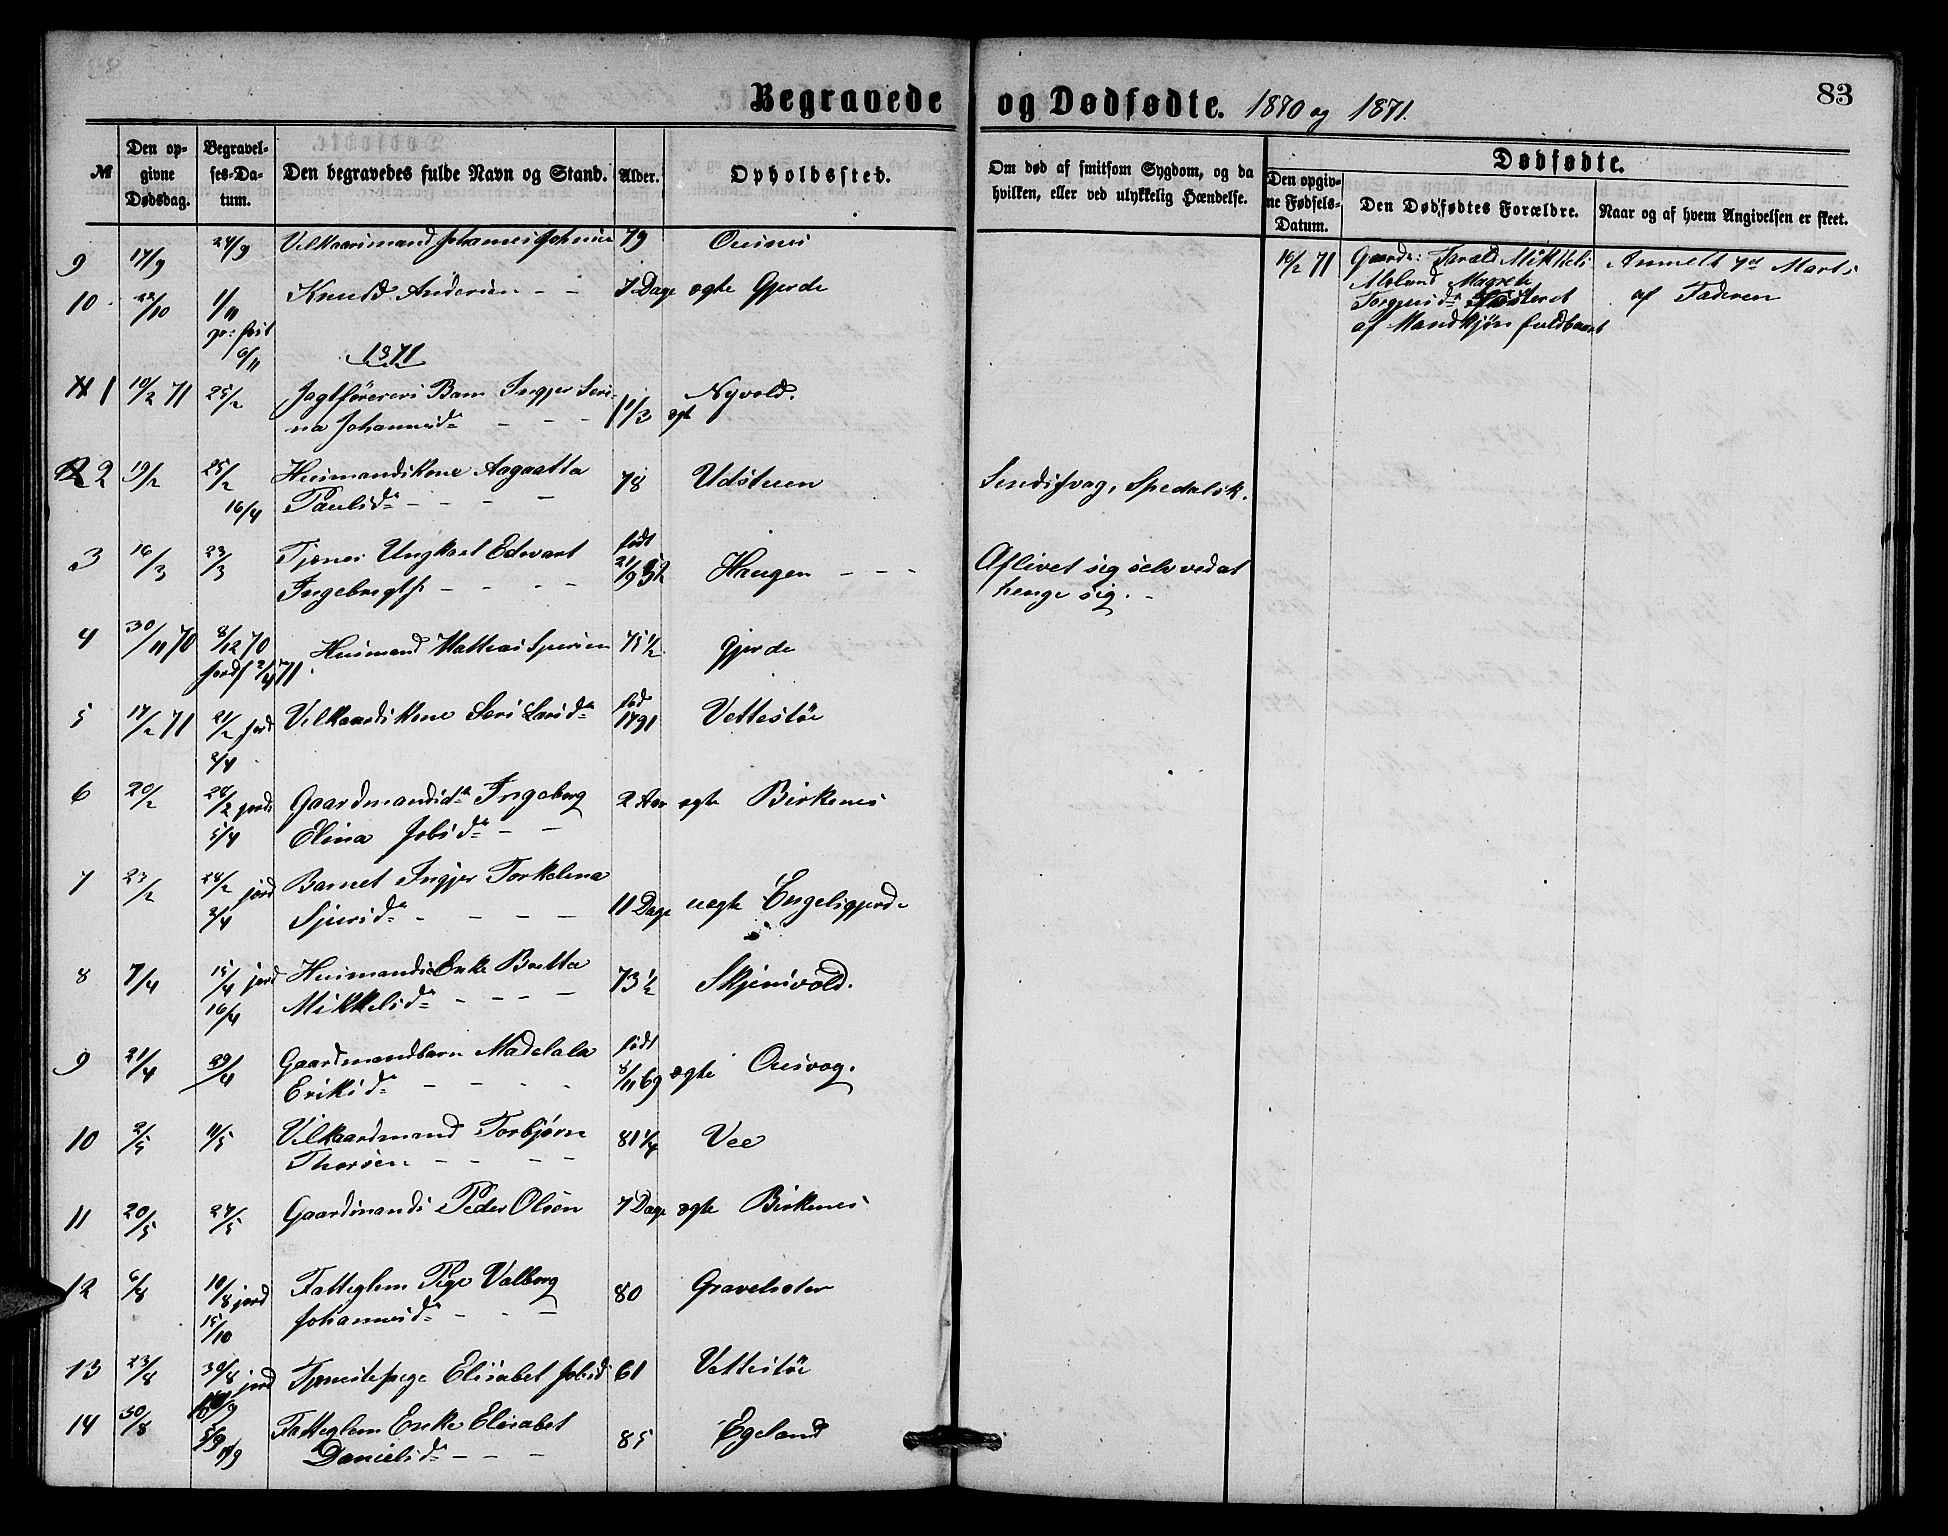 83
Begravede og Dødfødte. 1870 og 1871.
№
Den opgivne Dødsdag.
Begravelses-Datum.
Den begravedes fulde Navn og Stand.
Alder.
Opholdssted.
Om død af smitsom Sygdom, og da hvilken, eller ved ulykkelig Hændelse.
Dødfødte.
Den opgivne Fødsels-Datum.
Den Dødfødtes Forældre.
Naar og af hvem Angivelsen er skeet.
9 17/9 24/9 Vilkaarsmand Johannes 79
16/2 71 Gaardm: Tarald Mikkels
Aasland Magrete
Torgersd.
af Mandkjøn fuldbaaret
Anmeldt 7de Marts
af Faderen
10 22/10 1/11 Knud Andersen - - 7 Dage ægte Gjerde
6/11
1871
1 10/2 71 25/2 Jagtførerers Barn Inger Seri-
na Johannesd. - - - 1 1/3 ægte Nyvold.
2 19/2 25/2 Husmandskone Aagaatta
16/4 Paulsd. - - - 78 Udstuen
Sindssvag, Spedalsk.
3 16/3 23/3 Tjenes Ungkarl Edvart
Ingebrigts. - - - født 21/9 Haugen - - -
Aflivet sig selv ved at
henge sig. -
4 30/11 70 8/12 70 Husmand Mattias Sjursen 75 1/2 Gjerde
jordf 2/4 71.
5 17/2 71 21/2 jord Vilkaardskone Seri Larsd. fød 1791 Vettestøe
2/4
6 20/2 28/2 jord Gaardmandsd. Ingeborg 2 Aar ægte Birkenes
5/4 Elina Jobsd. - -
7 23/2 28/2 jord Barnet Ingjer Torkelena
2/4 Sjursd. - - - - 11 Dage uægte Engelsgjerde
8 7/4 15/4 jord Husmands Enke Britta
16/4 Mikkelsd. - - - 73 1/2 Skjensvold.
9 21/4 29/4 Gaardmandbarn Madelala
Eriksd. - - - - født 8/11 69 ægte Onsvag.
10 2/5 11/5 Vilkaardmand Torbjørn
Thorsen - - - - 81 1/4 Vee
11 20/5 27/5 Gaardmands Peder Olsen 7 Dage ægte Birkenes
12 6/8 10/8 jord Fatteglem Pige Valborg
15/10 Johannesd. - - - 80
13 23/8 30/8 jord Tjenestepige Elisabet Jobsd. 61 Vettestøe
14 30/8 5/9 Fatteglem Enke Elisabet
11/9 Danielsd. - - - 85 Egeland